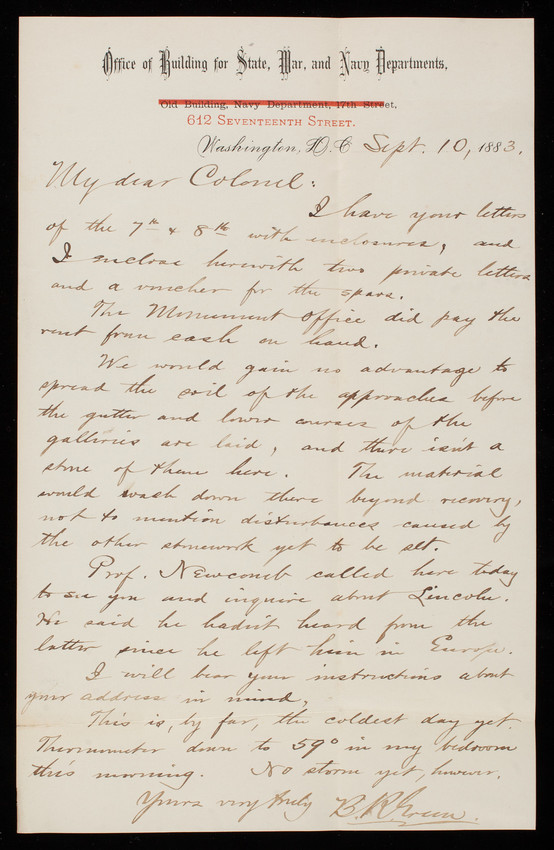 Office of Building for State, War, and Navy Departments,
Old Building, Navy Department, 17th Street,
612 SEVENTEENTH STREET.
Washington, D.C. Sept. 10, 1883.
My dear Colonel:
I have your letters
of the 7th & 8th with enclosures, and
I enclose herewith two private letters
and a voucher for the spars.
The Monument Office did pay the
rent from cash on hand.
We would gain no advantage to
spread the soil of the approaches before
the gutter and lower courses of the
galleries are laid, and there isn't a
stone of them here. The material
would wash down there beyond recovery,
not to mention disturbances caused by
the other stonework yet to be set.
Prof. Newcomb called here today
to see you and inquire about Lincoln.
He said he hadn't heard from the
latter since he left him in Europe.
I will bear your instructions about
your address in mind,
This is, by far, the coldest day yet.
Thermometer down to 59° in my bedroom
this morning. No storm yet, however.
Yours very truly B.R. Green.